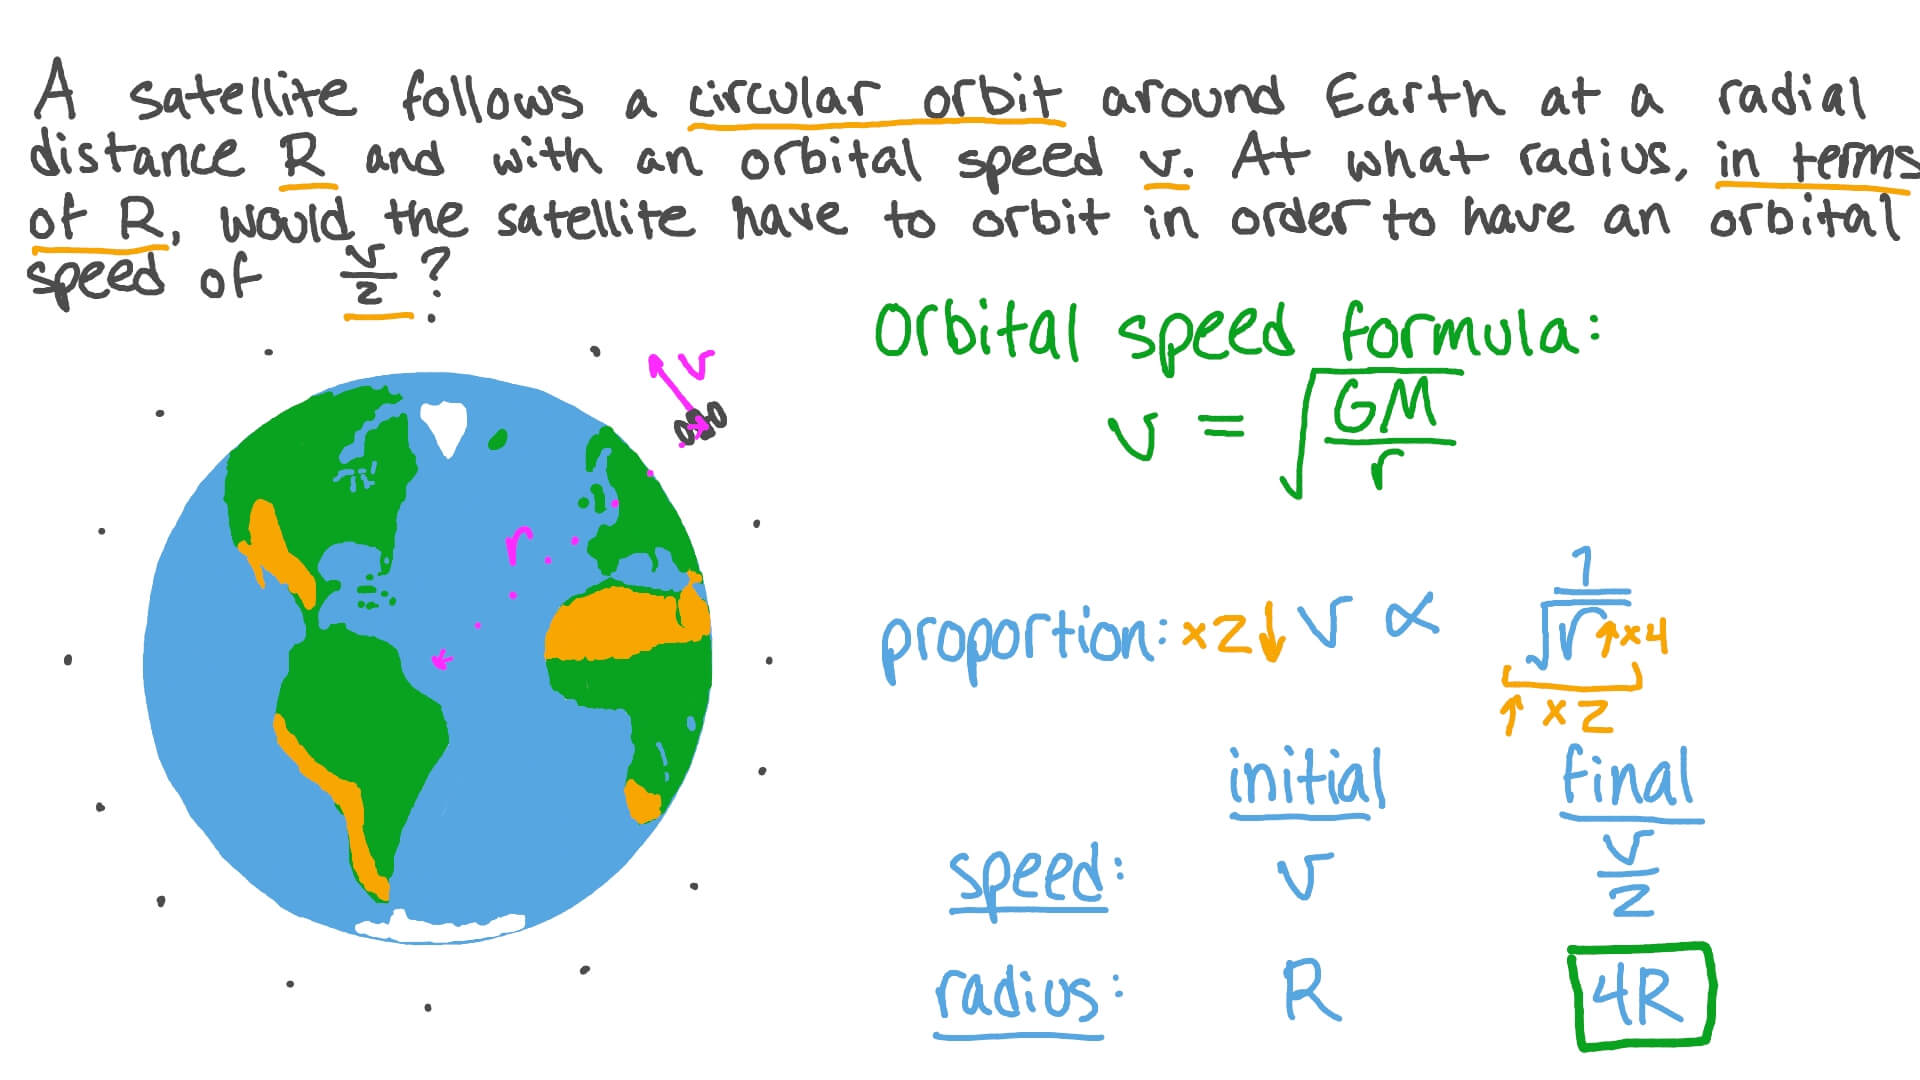 A satellite follows a circular orbit around Earth at a radial
distance R and with an orbital speed v. At what radius, in terms
of R, would the satellite have to orbit in order to have an orbital
speed of v/2?
v
r
Orbital speed formula:
v = √(GM/r)
proportion: ×2↓ v ∝ 1/√r ↑×4
↑ ×2
initial final
speed: v v/2
radius: R 4R